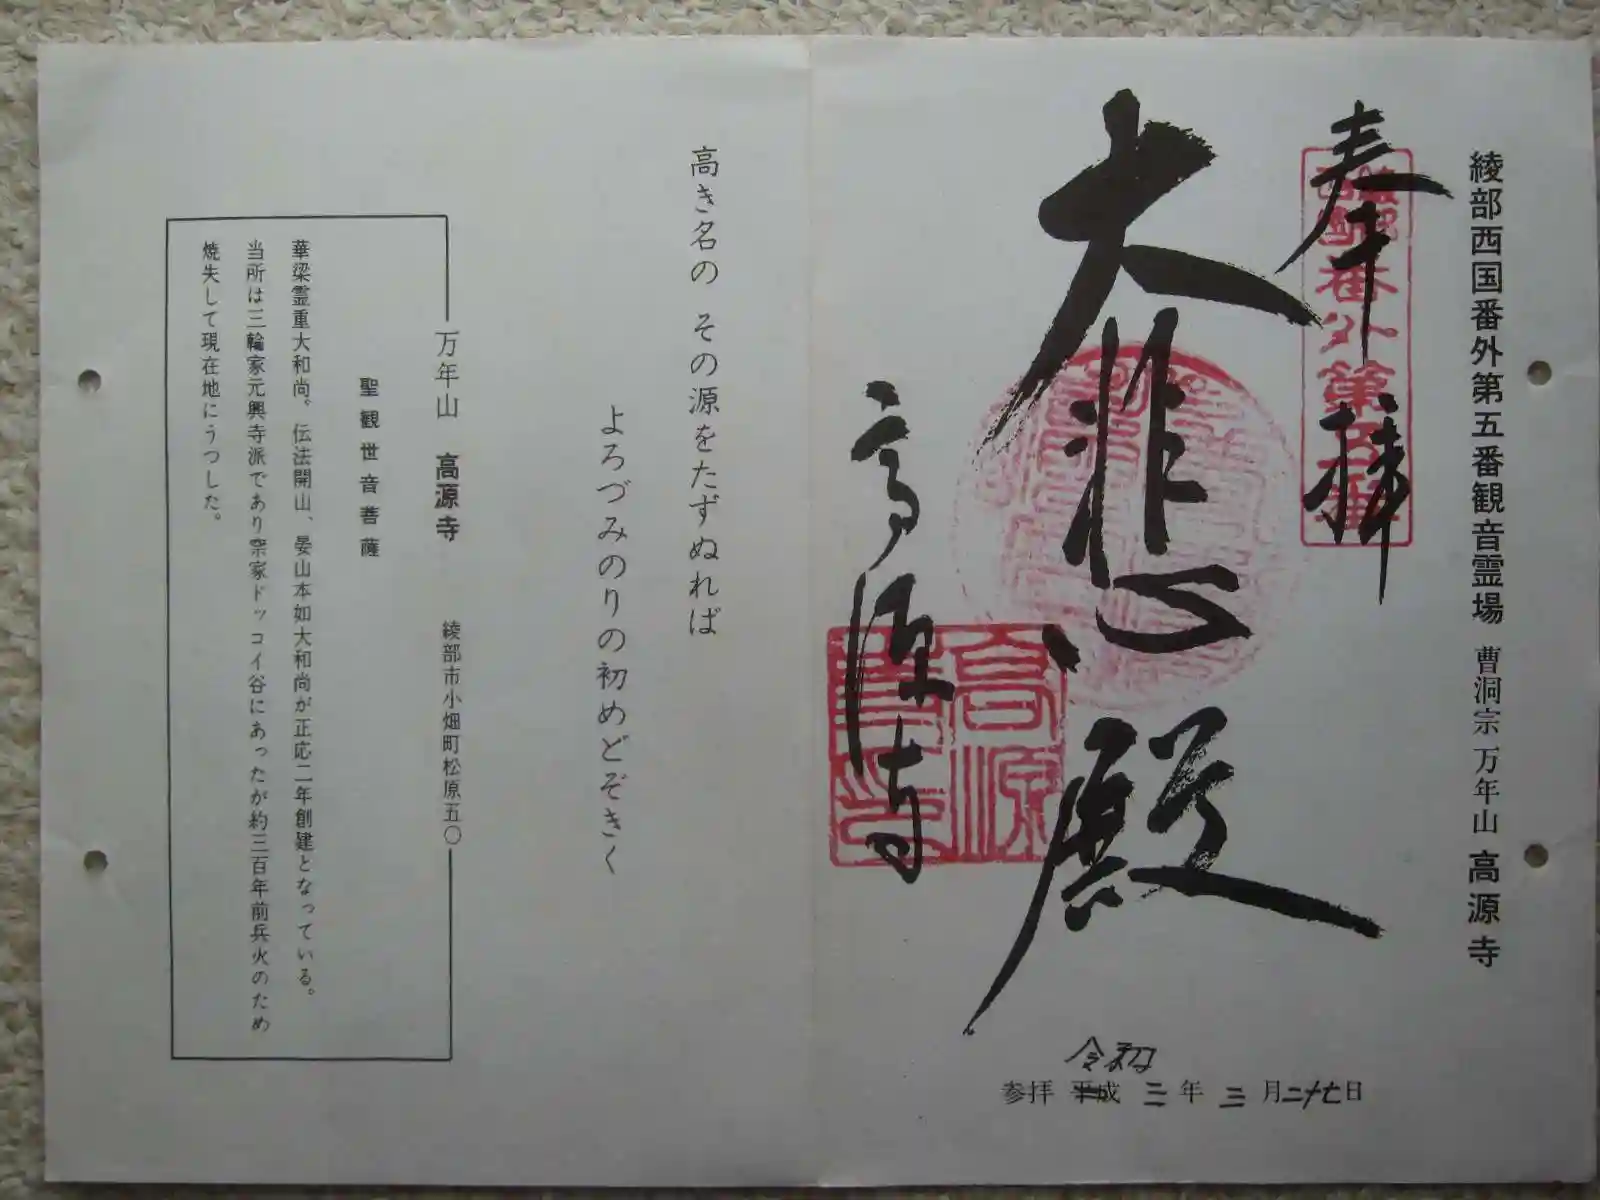 綾部西国番外第五番観音霊場 曹洞宗 万年山 高源寺
奉拝
番外第五番
大悲殿
高源寺
高源
令和
参拝 平成 三 年 三 月 二十七 日
高き名の その源をたずぬれば
よろづみのりの初めどぞきく
万年山 高源寺 綾部市小畑町松原五〇
聖観世音菩薩
華梁霊重大和尚。伝法開山、晏山本如大和尚が正応二年創建となっている。
当所は三輪家元興寺派であり宗家ドッコイ谷にあったが約三百年前兵火のため
焼失して現在地にうつした。